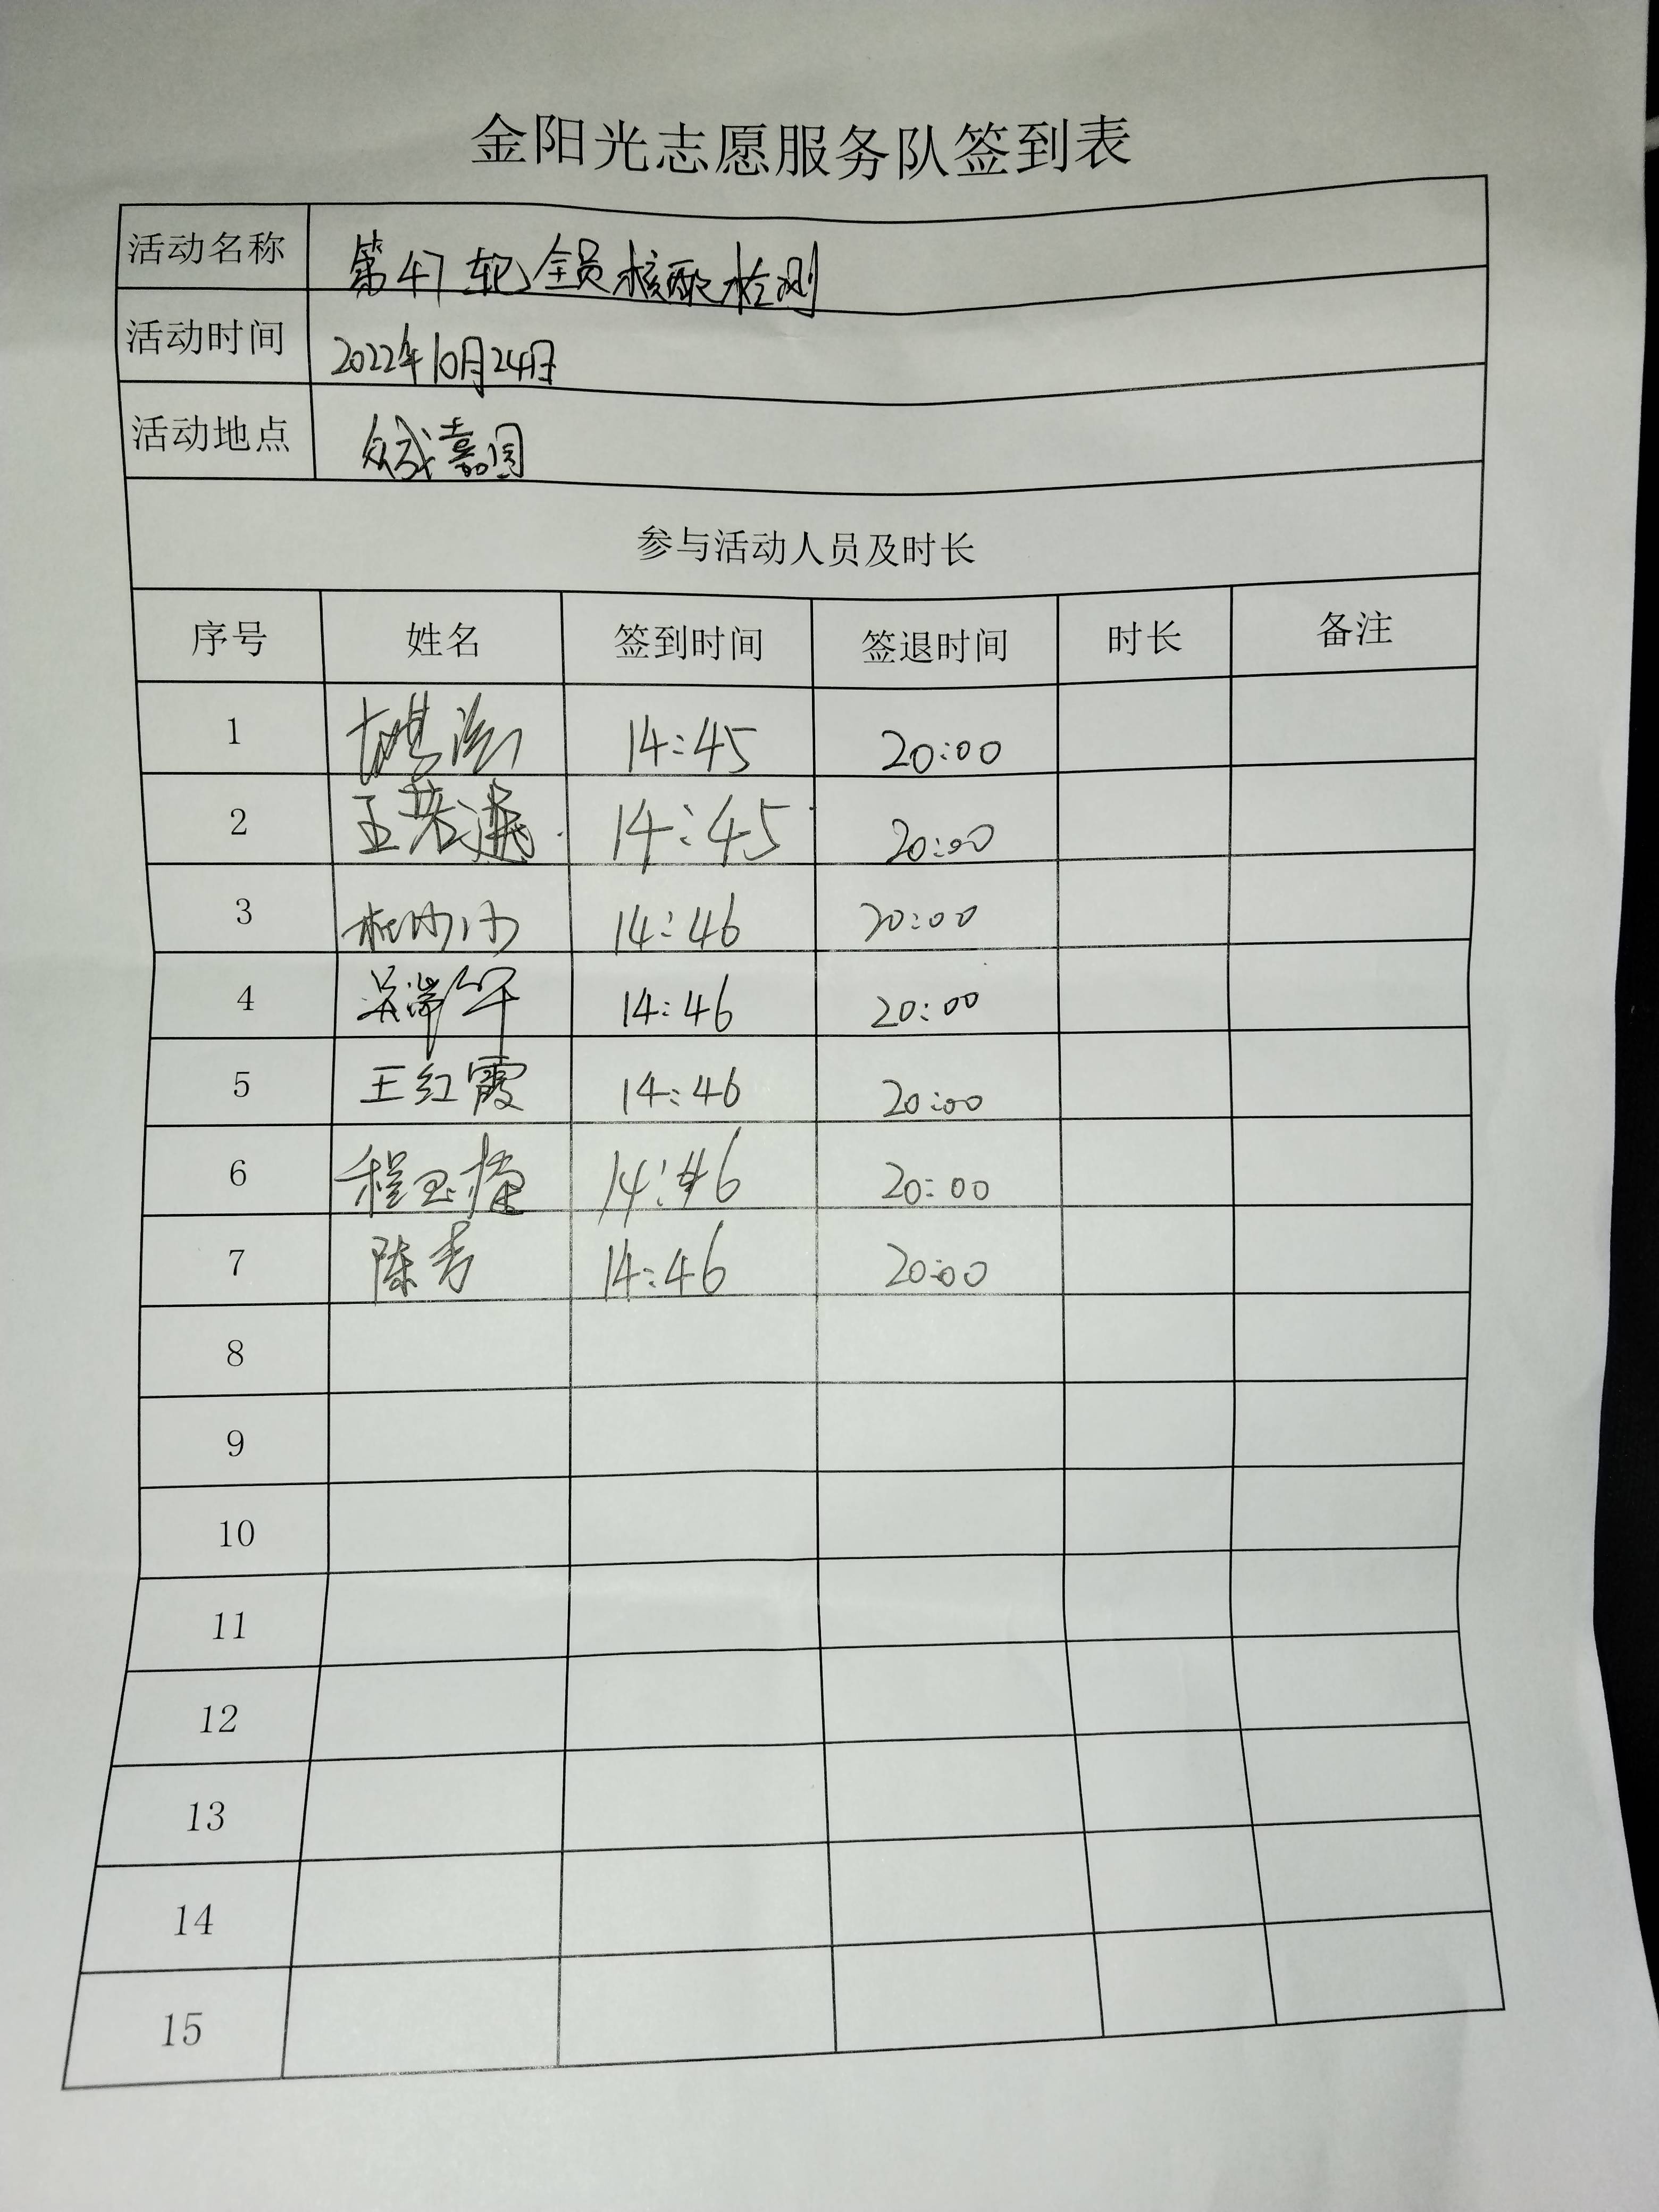 金阳光志愿服务队签到表
活动名称 第47轮全员核酸检测
活动时间 2022年10月24日
活动地点 众成嘉园
参与活动人员及时长
序号 姓名 签到时间 签退时间 时长 备注
1 14:45 20:00
2 王 14:45 20:00
3 14:46 20:00
4 吴 14:46 20:00
5 王红霞 14:46 20:00
6 程玉 14:46 20:00
7 陈秀 14:46 20:00
8
9
10
11
12
13
14
15